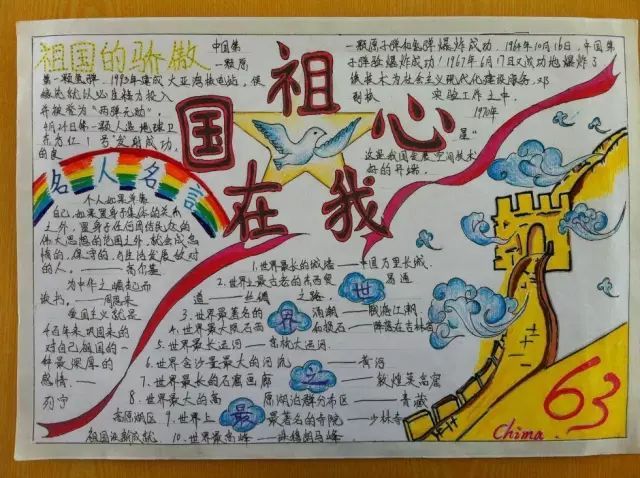 祖国的骄傲
中国第
一颗原
第一颗氢弹
1993年建成大亚湾核电站
并被誉为"两弹元勋"。
4月24日第一颗人造地球卫
东方红1号"发射成功,
的良
一颗原子弹和氢弹爆炸成功。1964年10月16日,中国第
子弹验爆炸成功!1967年6月17日又成功地爆炸了
技术为社会主义现代化建设服务,邓
实验工作之中。
1970年
星"
这是我国发展空间技术
好的开端。
祖国在我心
名人名言
个人如果单靠
自己,如果置身于集体的关系
之外,置身于任何团结民众的
伟大思想的范围之外,就会成怠
惰的、保守的、与生活发展敌对
的人。——高尔基
为中华之崛起而
读书。——周恩来
爱国主义就是
千百年来巩固来的
对自己祖国的一
种最深厚的
感情。——
列宁
世界之最
1.世界最长的城墙——中国万里长城。
2.世界上最古老的东西贸易通
道——丝绸之路。
3.世界最著名的涌潮——钱塘江潮。
4.世界最大陨石雨和陨石——降落在吉林省
5.世界最长运河——京杭大运河。
6.世界含沙量最大的河流——黄河
7.世界最长的石窟画廊——敦煌莫高窟
8.世界最大的高原湖泊群分布区——青藏
高原湖区
9.世界上最著名的寺院——少林寺
10.世界最高峰——珠穆朗玛峰。
63
Chima.